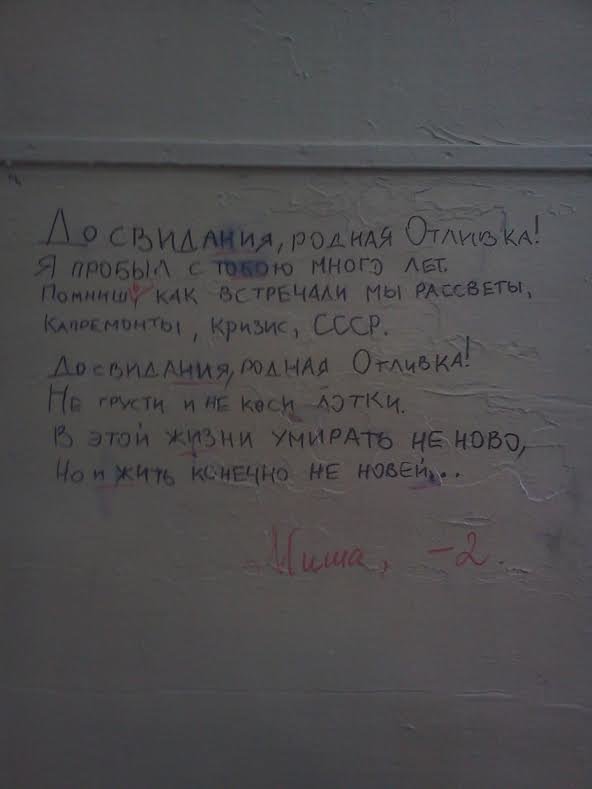 До свидания, родная Отливка!
Я пробыл с тобою много лет.
Помниш, как встречали мы рассветы,
Капремонты, кризис, СССР.
До свидания, родная Отливка!
Не грусти и не коси лотки.
В этой жизни умирать не ново,
Но и жить конечно не новей...
Миша, -2.